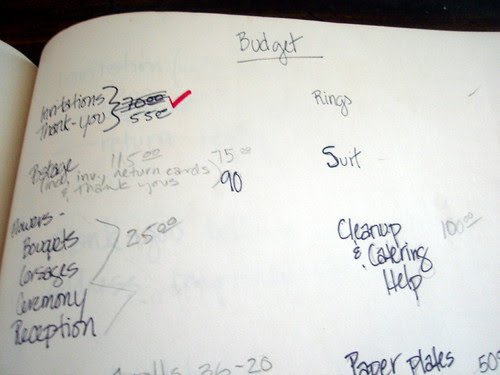 Budget
Invitations
Thank-you
70.00
550
Rings
Postage 115.00 75.00
(incl, inv., return cards
& thank yous
90
Suit
Flowers -
Bouquets
Corsages
Ceremony
Reception
25.00
Cleanup
& Catering
Help
100.00
36-20
Paper plates 50